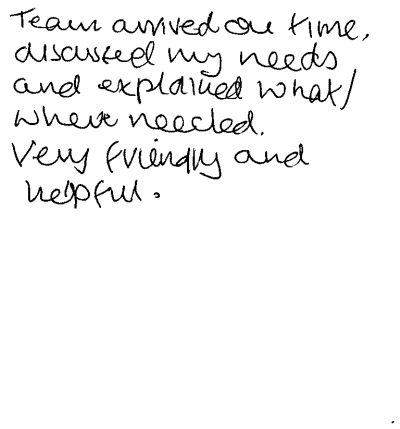 Team arrived on time,
discussed my needs
and explained what/
where needed.
Very friendly and
helpful.